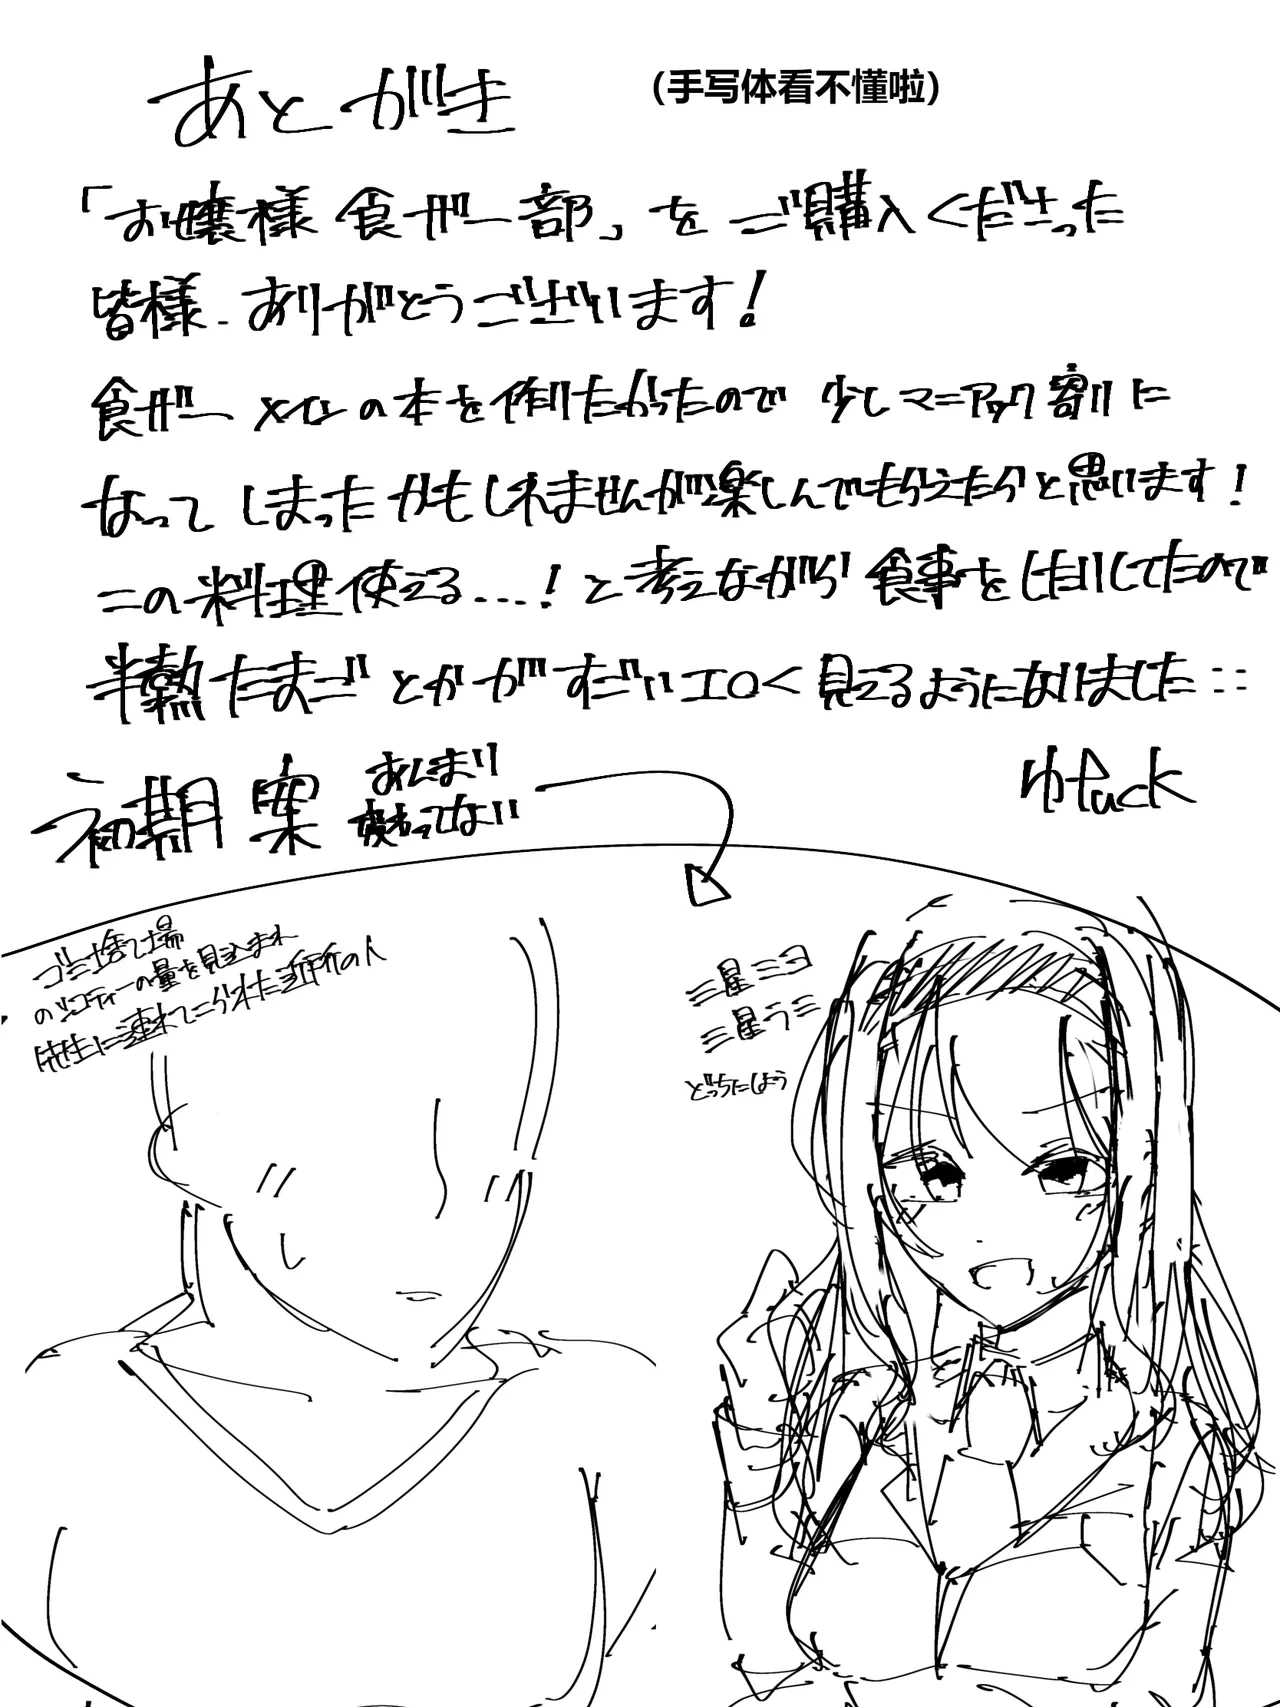 あとがき
(手写体看不懂啦)
「お嬢様食ザー部」をご購入くださった
皆様、ありがとうございます!
食ザーメインの本を作りたかったので少しマニアック割に
なってしまったかもしれませんが楽しんでもらえたらと思います!
この料理使える...!と考えながら食事をしたりしてたので
半熟たまごとかがすごいエロく見えるようになりました::
ゆfuck
初期案
あんまり
変わってない
ゴミ捨て場
の量を見込まれ
先生に連れてこられた近所の人
三星ミコ
三星ラミ
どっちにしよう